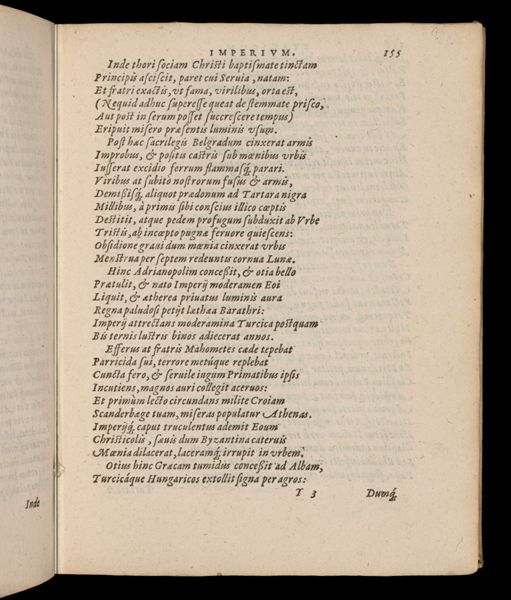 IMPERIVM. 155
Inde thori sociam Christi baptismate tinctam
Principis asciscit, paret cui Seruia, natam:
Et fratri exactis, vt fama, virilibus, orta est,
(Nequid adhuc superesse queat de stemmate prisco,
Aut post in serum posset succrescere tempus)
Eripuit misero præsentis luminis vsum.
Post hæc sacrilegis Belgradum cinxerat armis
Improbus, & positis castris sub mœnibus vrbis
Iusserat excidio ferrum flammasq́; parari.
Viribus at subitò nostrorum fusus & armis,
Demißisq́; aliquot prædonum ad Tartara nigra
Millibus, à primis sibi conscius illico cœptis
Destitit, atque pedem profugum subduxit ab Vrbe
Tristis, ab incœpto pugnæ feruore quiescens:
Obsidione graui dum mœnia cinxerat vrbis
Menstrua per septem redeuntis cornua Lunæ.
Hinc Adrianopolim conceßit, & otia bello
Prætulit, & nato Imperij moderamen Eoi
Liquit, & ætherea priuatus luminis aura
Regna paludosi petijt læthæa Barathri:
Imperij attrectans moderamina Turcica postquam
Bis ternis lustris binos adiecerat annos.
Efferus at fratris Mahometes cæde tepebat
Parricida sui, terrore metúque replebat
Cuncta fero, & seruile iugum Primatibus ipsis
Incutiens, magnos auri collegit aceruos:
Et primùm lecto circundans milite Croiam
Scanderbage tuam, miseras populatur Athenas.
Imperijq́; caput truculentus ademit Eoum
Christicolis, sæuis dum Byzantina cateruis
Mœnia dilacerat, laceramq́; irrupit in vrbem.
Otius hinc Græcam tumidus conceßit ad Albam,
Turcicáque Hungaricos extollit signa per agros:
T 3 Dumq́;
Inde